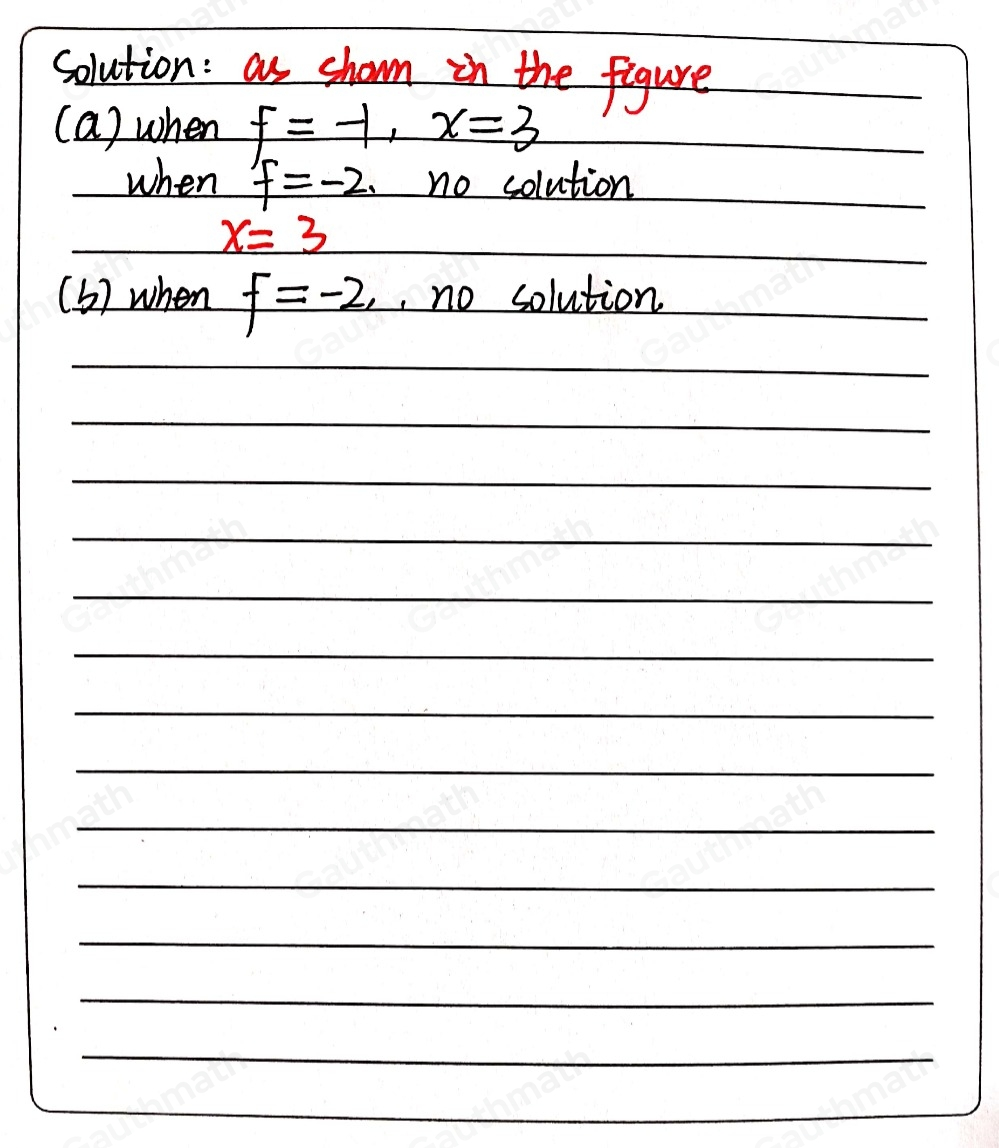 Solution: as shown in the figure
(a) when f = -1, x = 3
when f = -2, no solution
x = 3
(b) when f = -2, , no solution.
Gauthmath